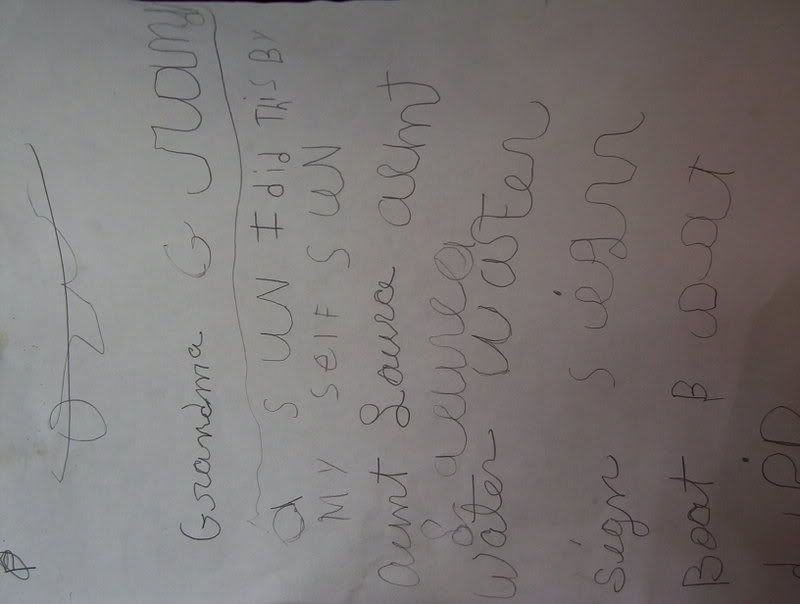 Grandma G rand
a S UN I did This By
MY SelF S UN
aunt Laura aunt
Laura
Water Water
Sign S ign
Boat B oat